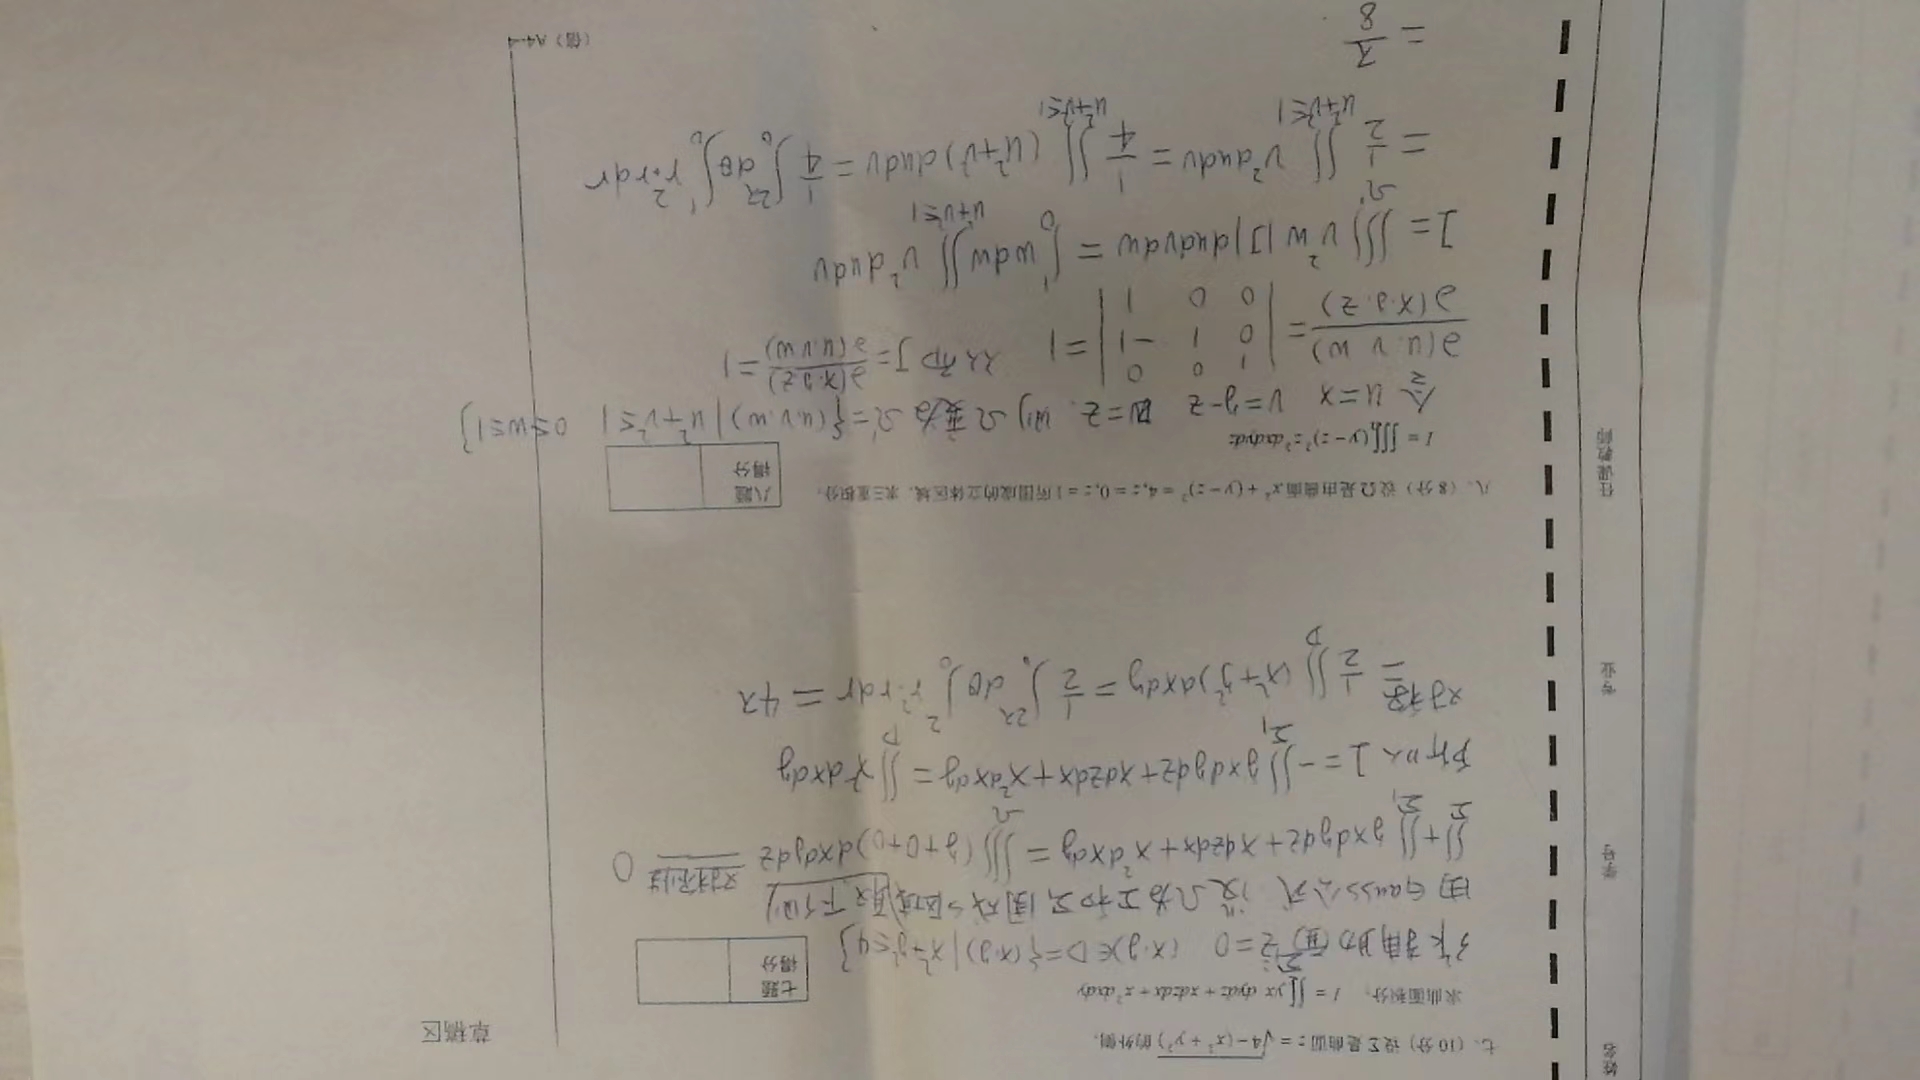 姓名
学号
专业
任课教师
草稿区
七、(10分) 设Σ是曲面 z = √(4-(x²+y²)) 的外侧,
求曲面积分: I = ∬_Σ yx dydz + xdzdx + x²dxdy
七题得分
作辅助面 Σ₁: z=0 (x,y)∈D={(x,y)|x²+y²≤4}
由Gauss公式 设Ω为Σ和Σ₁围成的区域 取下侧
∬_Σ + ∬_Σ₁ yxdydz+xdzdx+x²dxdy = ∭_Ω (y+0+0)dxdydz 对称性 0
所以 I = -∬_Σ₁ yxdydz+xdzdx+x²dxdy = ∬_D x²dxdy
对称 = 1/2 ∬_D (x²+y²)dxdy = 1/2 ∫₀^2π dθ ∫₀² r²·rdr = 4π
八、(8分) 设Ω是由曲面 x²+(y-z)²=4, z=0, z=1所围成的立体区域, 求三重积分:
I = ∭_Ω (y-z)² z³ dxdydz
八题得分
令 u=x v=y-z w=z, 则Ω变为Ω'={(u,v,w)|u²+v²≤1 0≤w≤1}
∂(u,v,w)/∂(x,y,z) = |1 0 0; 0 1 -1; 0 0 1| = 1 从而 J = ∂(x,y,z)/∂(u,v,w) = 1
I = ∭_Ω' v²w|J|dudvdw = ∫₀¹ wdw ∬_{u²+v²≤1} v²dudv
= 1/2 ∬_{u²+v²≤1} v²dudv = 1/4 ∬_{u²+v²≤1} (u²+v²)dudv = 1/4 ∫₀^2π dθ ∫₀¹ r²·rdr
= π/8.
(信) A4-4